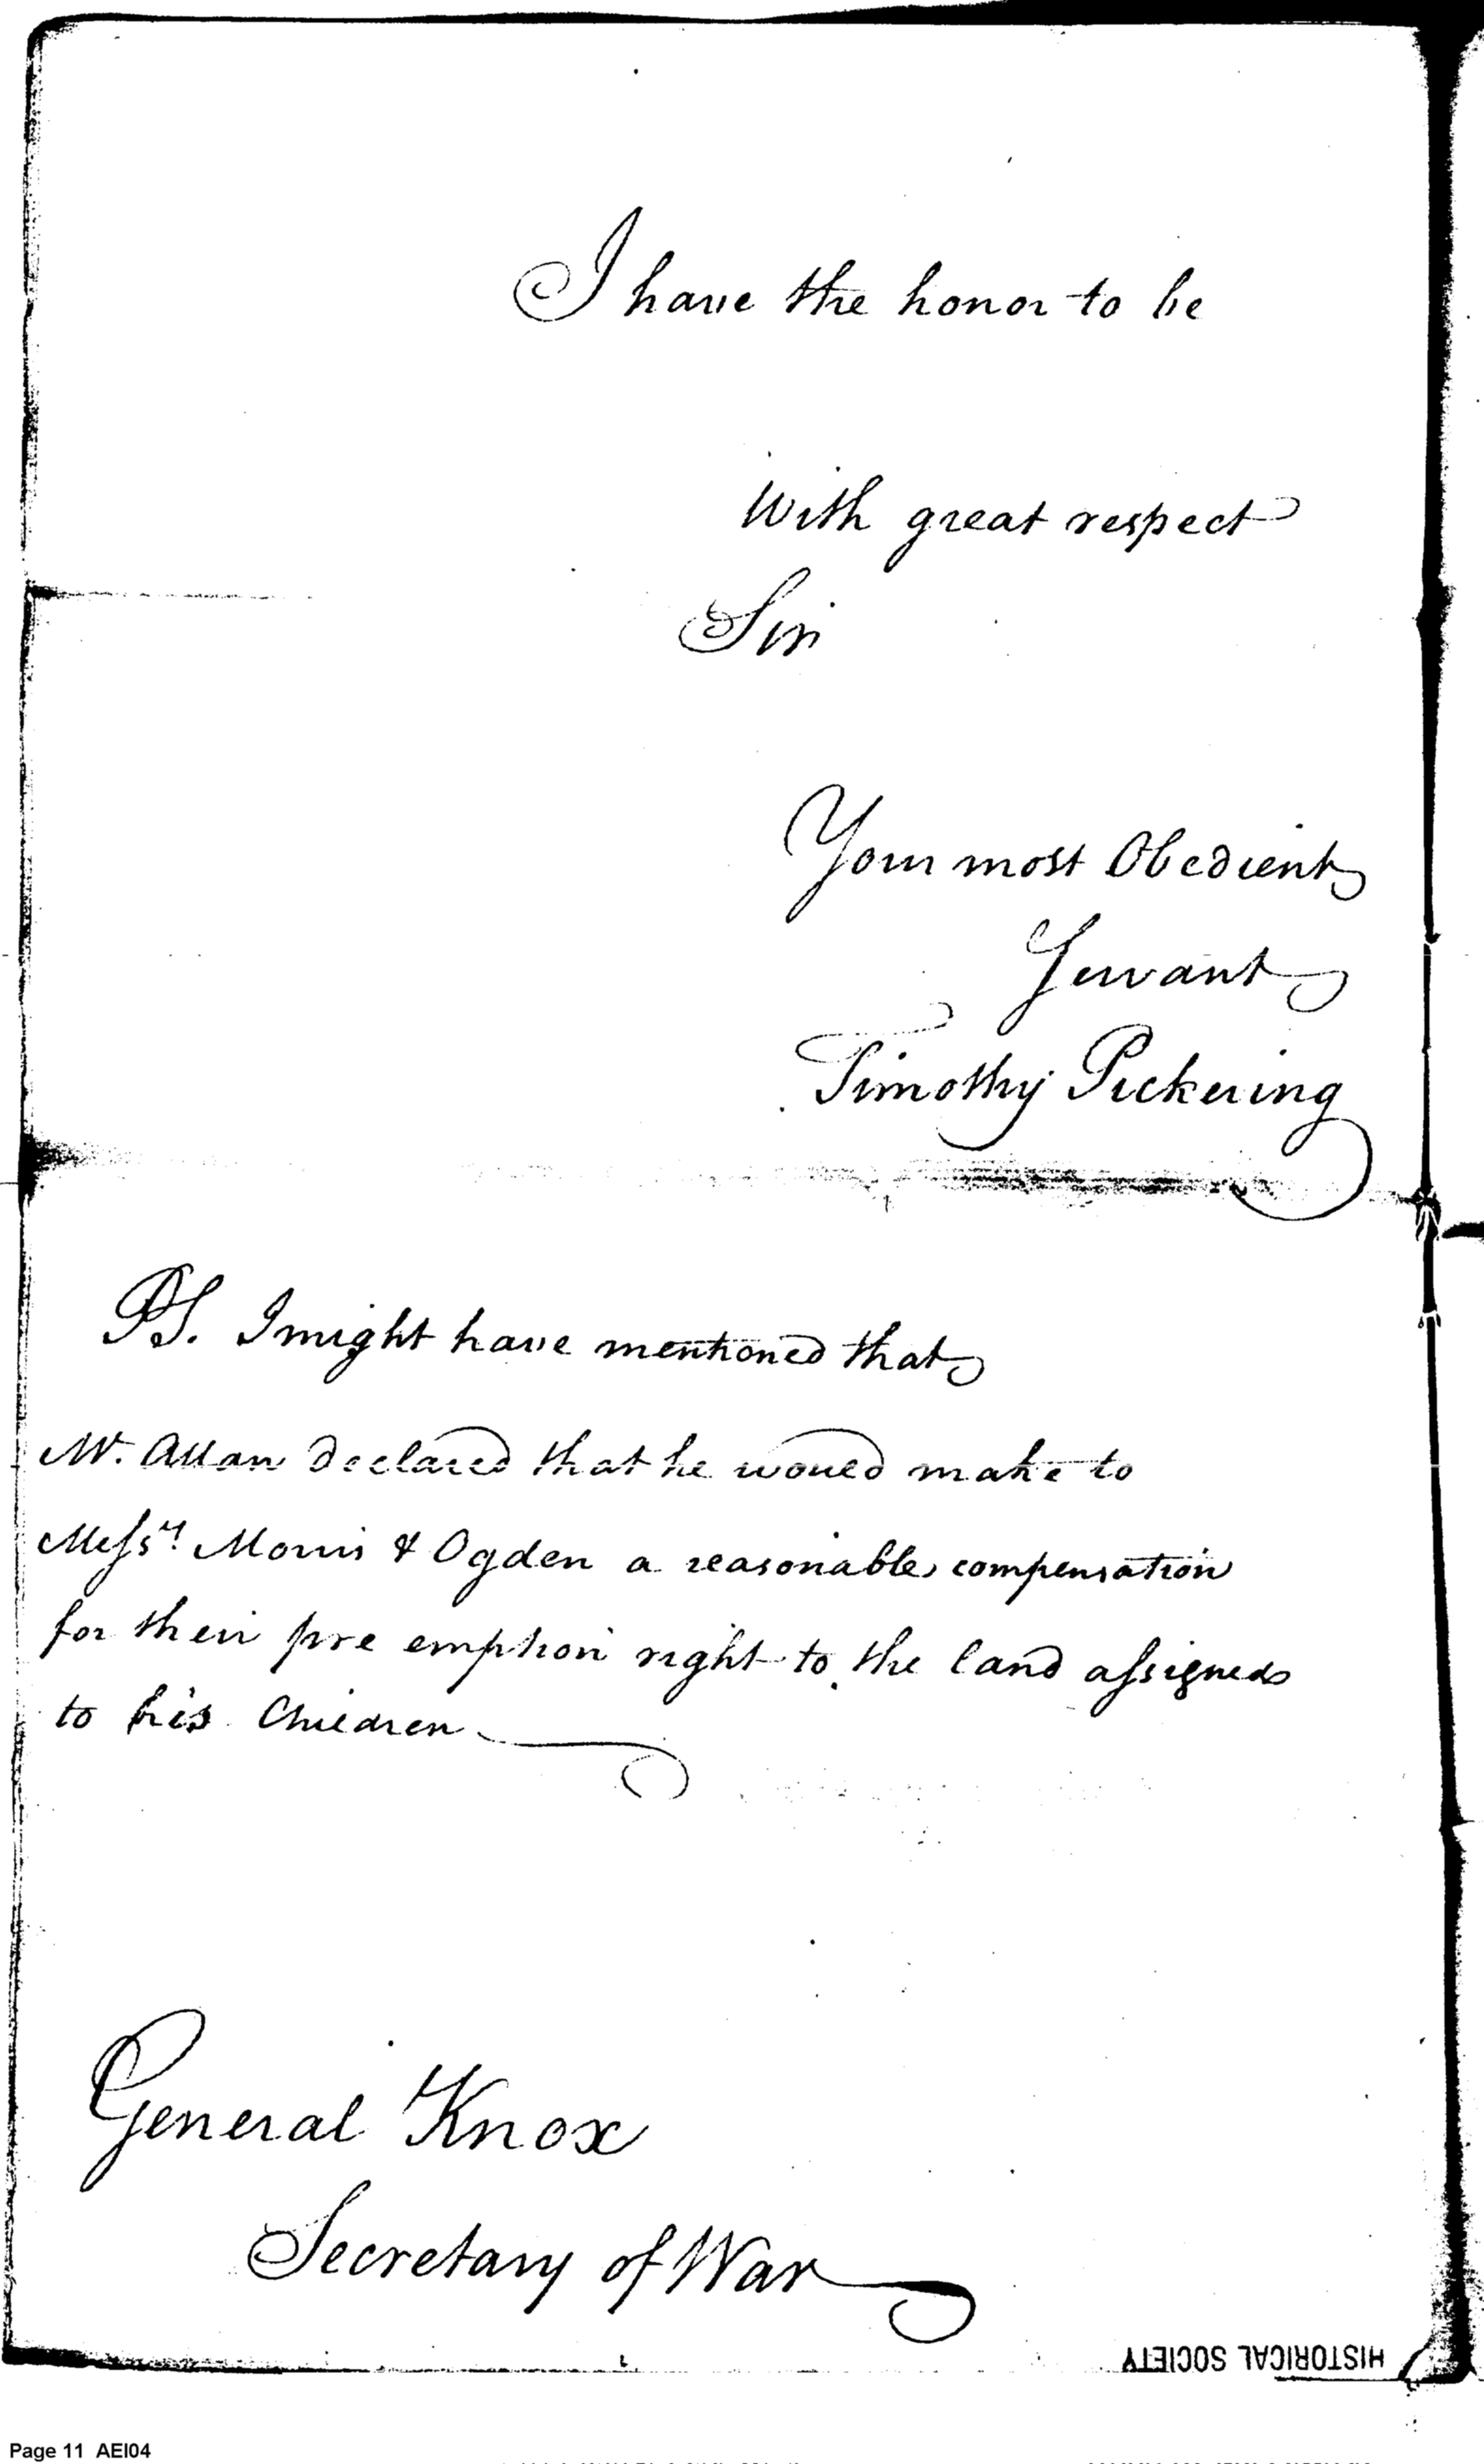 I have the honor to be
With great respect
Sir
Your most Obedient
Servant
Timothy Pickering
PS. I might have mentioned that
Mr. Allan declared that he would make to
Messrs. Morris & Ogden a reasonable compensation
for their pre emption right to the land assigned
to his Children
General Knox
Secretary of War
HISTORICAL SOCIETY
Page 11 AEI04